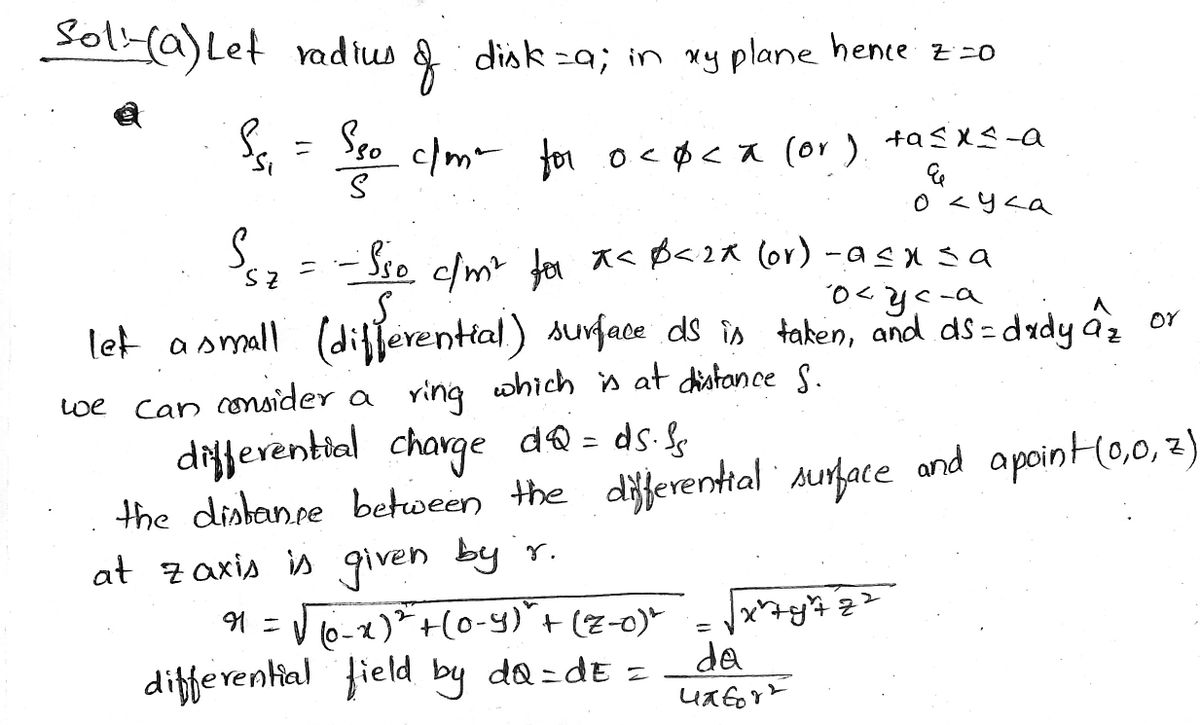 Sol:-(a) Let radius of disk = a; in xy plane hence z=0
ρs1 = ρs0/ρ c/m² for 0 < ϕ < π (or) +a ≤ x ≤ -a
& 0 < y < a
ρs2 = -ρs0/ρ c/m² for π < ϕ < 2π (or) -a ≤ x ≤ a
0 < y < -a
let a small (differential) surface ds is taken, and ds = dxdy âz or
we can consider a ring which is at distance ρ.
differential charge dQ = ds·ρs
the distance between the differential surface and a point (0,0,z)
at z axis is given by r.
r = √((0-x)² + (0-y)² + (z-0)²) = √(x²+y²+z²)
differential field by dQ = dE = dQ/4πϵ0r²